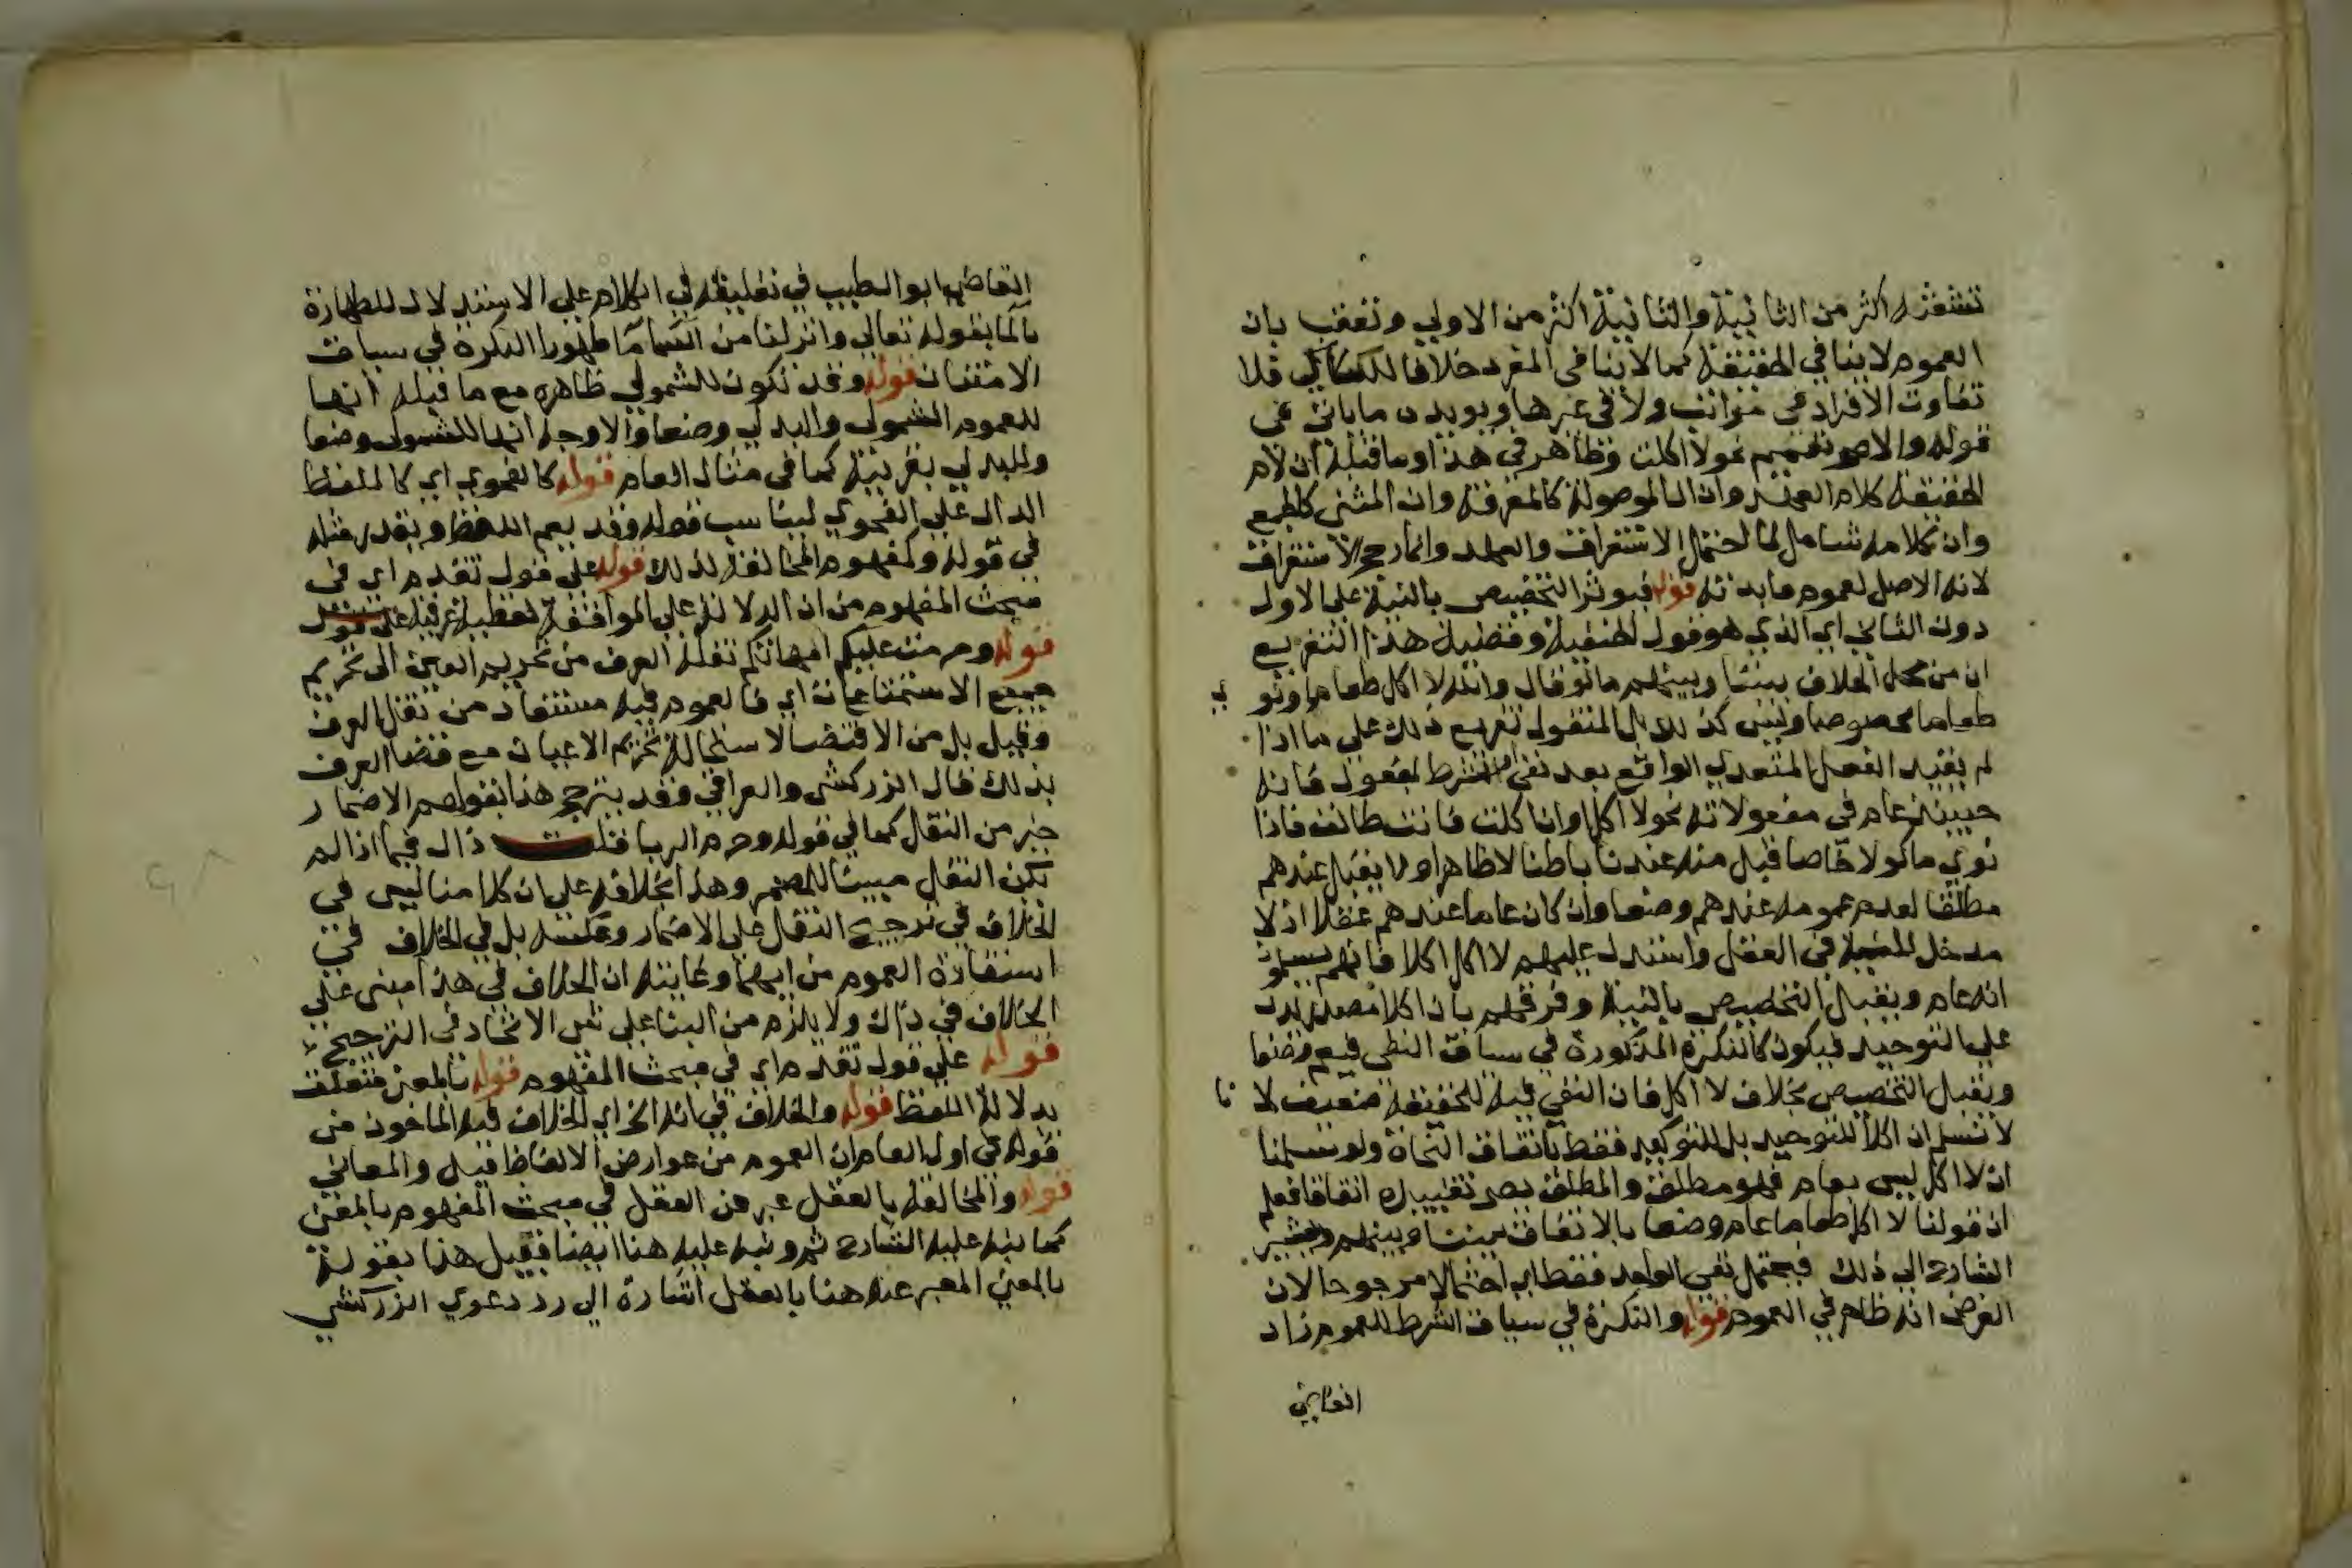 تستغرقه اكثر من الثانية والثانية اكثر من الاولي وتعقب بان
العموم لا ينافي الحقيقة كما لا ينافى المفرد خلافا للكسائي فلا
تفاوت الافراد فى مراتب ولا فى غيرها ويويده ما ياتى فى
قوله والاصح تعميم نحو لا اكلت وظاهر في هذا وما قبله ان لام
الحقيقة كلام العهد وان ال الموصولة كالمعرفة وان المثنى كالجمع
وان كلامه شامل لما احتمل الاستغراق والعهد وانما رجح الاستغراق
لانه الاصل لعموم فايدته قوله فيوثر التخصيص بالنية على الاول
دون الثاني اي الذي هو قول الحنفية وقضية هذا التفريع
ان من محل الخلاف بيننا وبينهم ما لو قال والله لا اكل طعاما ونوي
طعاما مخصوصا وليس كذلك بل المنقول تفريع ذلك على ما اذا
لم يقيد الفعل المتعدي الواقع بعد نفي او شرط بمفعول فانه
حينئذ عام في مفعولاته نحو لا اكل وان اكلت فانت طالق فاذا
نوي ماكولا خاصا قبل منه عندنا باطنا لا ظاهرا ولا يقبل عندهم
مطلقا لعدم عمومه عندهم وضعا وان كان عاما عندهم عقلا اذ لا
مدخل للنية فى العقل واستدل عليهم لا اكل اكلا فانهم يسلمون
انه عام ويقبل التخصيص بالنية وفرقهم بان اكلا مصدر يدل
على التوحيد فيكون كالنكرة المذكورة في سياق النفى فيعم وضعا
ويقبل التخصيص بخلاف لا اكل فان النفي فيه للحقيقة ضعيف لانا
لا نسلم ان اكلا للتوحيد بل للتوكيد فقط باتفاق النحاة ولو سلمنا
ان لا اكل ليس بعام فهو مطلق والمطلق يصح تقييده اتفاقا فعلم
ان قولنا لا اكل طعاما عام وضعا بالاتفاق بيننا وبينهم ويشير
الشارح الى ذلك فيحتمل نفي الواحد فقط اي احتمالا مرجوحا لان
الفرض انه ظاهر في العموم قوله والنكرة في سياق الشرط للعموم زاد
القاضي
القاضي ابو الطيب في تعليقه في الكلام على الاستدلال للطهارة
بالما بقوله تعالى وانزلنا من السما ما طهورا النكرة في سياق
الامتنان قوله وقد تكون للشمولي ظاهره مع ما قبله انها
للعموم الشمولي والبدلي وضعا والاوجه انها للشمولي وضعا
وللبدلي بقرينة كما فى مثال العام قوله كالفحوي اي كاللفظ
الدال على الفحوي ليناسب قوله وقد يعم اللفظ ويقدر مثله
في قوله وكمفهوم المخالفة لذلك قوله على قول تقدم اي فى
مبحث المفهوم من ان الدلالة على الموافقة لفظية عرفية على قول
قوله وحرمت عليكم امهاتكم نقله العرف من تحريم العين الى تحريم
جميع الاستمتاعات اي فالعموم فيه مستفاد من نقل العرف
وقيل بل من الاقتضا لاستحالة تحريم الاعيان مع قضا العرف
بذلك قال الزركشى والعراقي وقد يترجح هذا بقولهم الاضمار
خير من النقل كما في قوله وحرم الربا قلت ذاك فيما اذا لم
يكن النقل مبينا للمضمر وهذا بخلافه على ان كلامنا ليس في
الخلاف في ترجيح النقل على الاضمار وعكسه بل في الخلاف فى
استفادة العموم من ايهما وغايته ان الخلاف في هذا مبنى على
الخلاف في ذاك ولا يلزم من البنا على شى الاتحاد فى الترجيح
قوله على قول تقدم اي في مبحث المفهوم قوله بالمعنى متعلق
بدلالة اللفظ قوله والخلاف في انه الخ اي الخلاف فيه الماخوذ من
قوله فى اول العام ان العموم من عوارض الالفاظ قيل والمعانى
قوله والمخالفة بالعقل عبر عن العقل في مبحث المفهوم بالمعنى
كما نبه عليه الشارح ثم ونبه عليه هنا ايضا فقيل هذا بقوله
بالمعنى المعبر عنه هنا بالعقل اشارة الي رد دعوي الزركشي